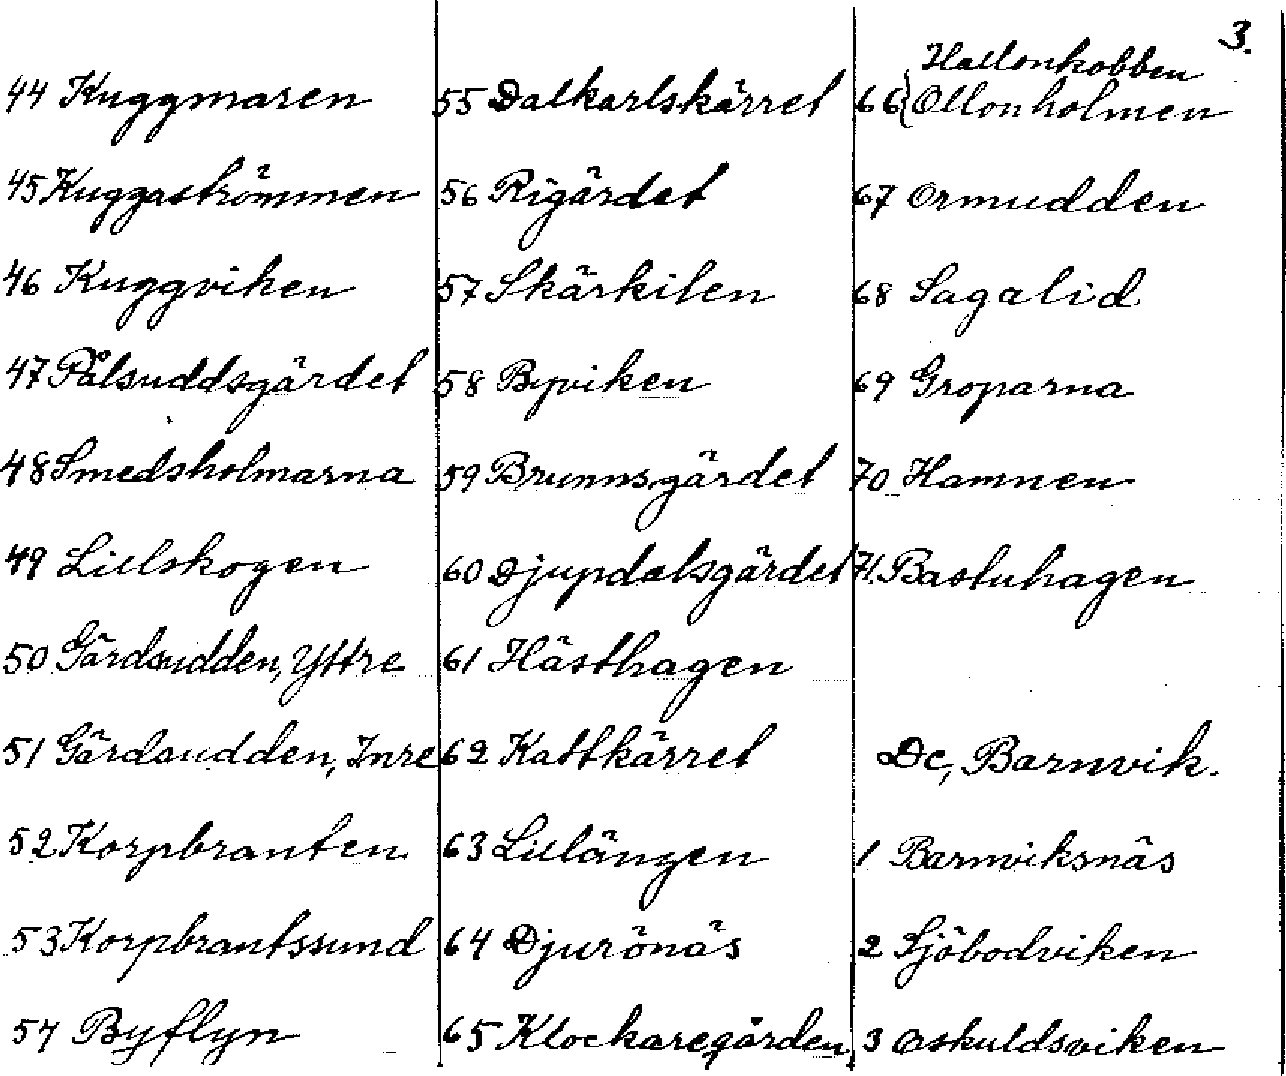 3.
44 Kuggmaren
45 Kuggaströmmen
46 Kuggviken
47 Pålsuddsgärdet
48 Smedsholmarna
49 Lillskogen
50 Gärdsudden, Yttre
51 Gärdsudden, Inre
52 Korpbranten
53 Korpbrantssund
54 Byflyn
55 Dalkarlskärret
56 Rigärdet
57 Skärkilen
58 Byviken
59 Brunnsgärdet
60 Djupdalsgärdet
61 Hästhagen
62 Kattkärret
63 Lillängen
64 Djurönäs
65 Klockaregärden
Hallonkobben
66 { Ollonholmen
67 Ormudden
68 Sagalid
69 Groparna
70 Hamnen
71. Bastuhagen
Dc, Barnvik.
1 Barnviksnäs
2 Sjöbodviken
3 Oskuldsviken